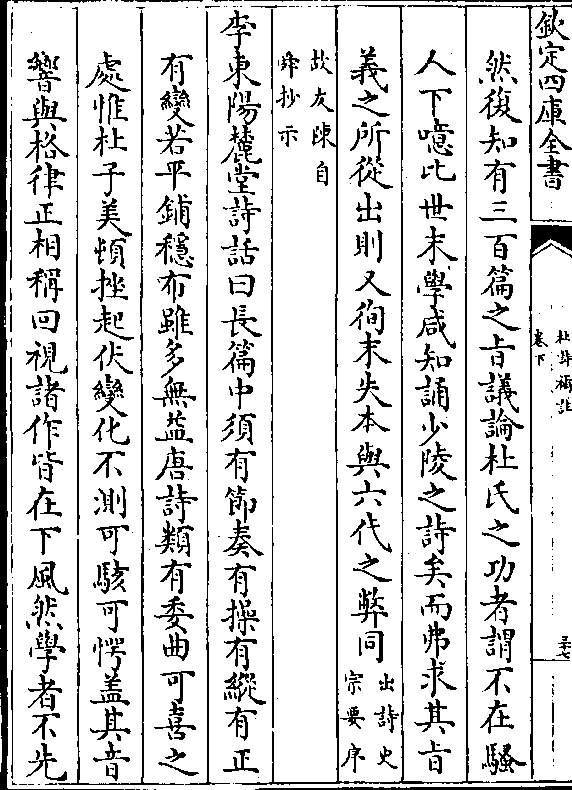 欽定四庫全書
杜詩攟
卷下
三十七
然復知有三百篇之旨議論杜氏之功者謂不在騷
人下噫比世末學咸知誦少陵之詩矣而弗求其旨
義之所從出則又徇末失本與六代之弊同
出詩史
宗要序
故友陳自
舜抄示
李東陽麓堂詩話曰長篇中須有節奏有操有縱有正
有變若平鋪穩布雖多無益唐詩類有委曲可喜之
處惟杜子美頓挫起伏變化不測可駭可愕蓋其音
響與格律正相稱回視諸作皆在下風然學者不先